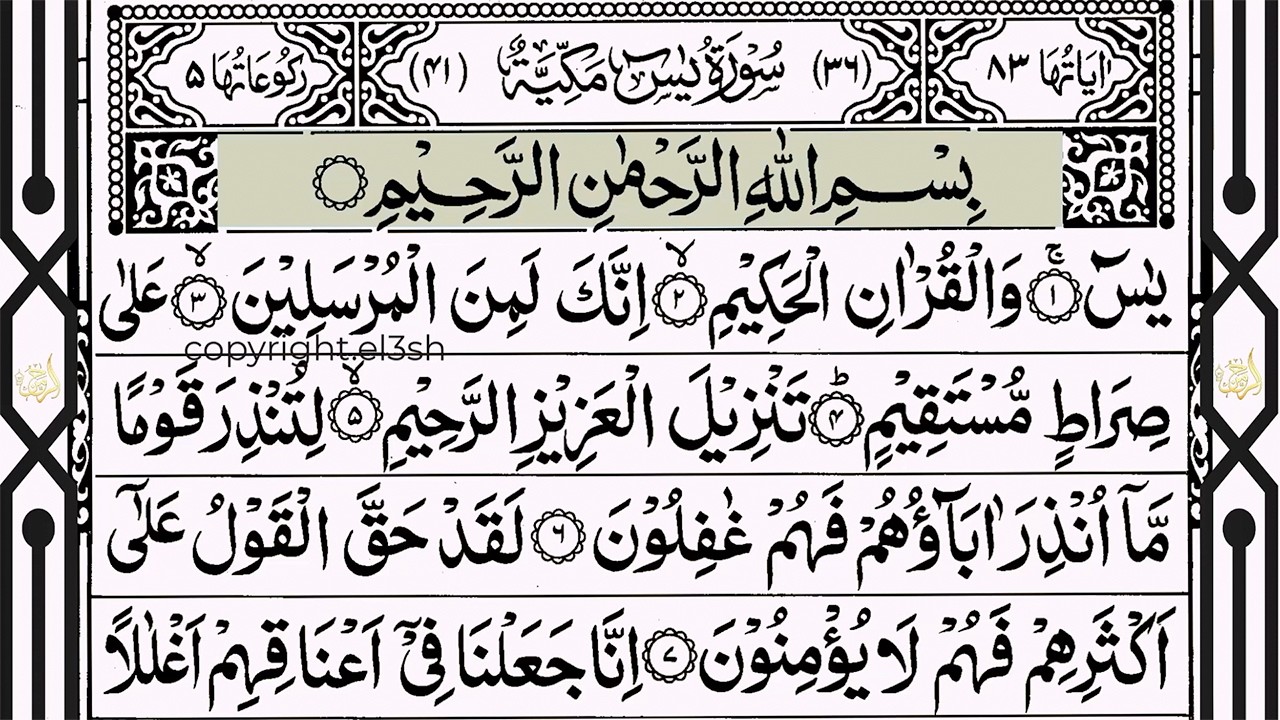 اٰيَاتُهَا ٨٣ (٣٦) سُوْرَةُ يٰسٓ مَكِّيَّةٌ (٤١) رُكُوْعَاتُهَا ٥
بِسْمِ اللّٰهِ الرَّحْمٰنِ الرَّحِيْمِ
يٰسٓ ۚ ﴿١﴾ وَالْقُرْاٰنِ الْحَكِيْمِ ۙ ﴿٢﴾ اِنَّكَ لَمِنَ الْمُرْسَلِيْنَ ۙ ﴿٣﴾ عَلٰى
copyright.el3sh
صِرَاطٍ مُّسْتَقِيْمٍ ؕ ﴿٤﴾ تَنْزِيْلَ الْعَزِيْزِ الرَّحِيْمِ ۙ ﴿٥﴾ لِتُنْذِرَ قَوْمًا
مَّاۤ اُنْذِرَ اٰبَآؤُهُمْ فَهُمْ غٰفِلُوْنَ ﴿٦﴾ لَقَدْ حَقَّ الْقَوْلُ عَلٰٓى
اَكْثَرِهِمْ فَهُمْ لَا يُؤْمِنُوْنَ ﴿٧﴾ اِنَّا جَعَلْنَا فِيْۤ اَعْنَاقِهِمْ اَغْلٰلًا